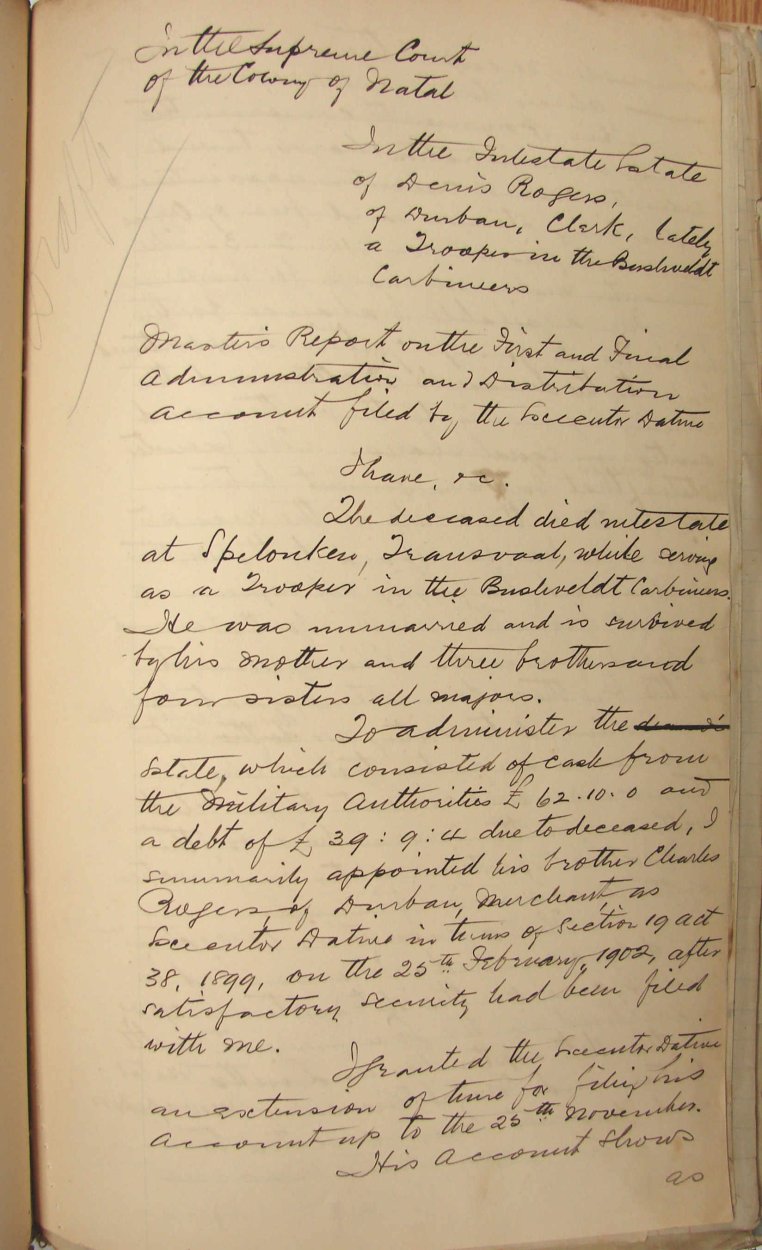 In the Supreme Court
of the Colony of Natal
In the Intestate Estate
of Denis Rogers,
of Durban, Clerk, lately
a Trooper in the Bushveldt
Carbineers
Master's Report on the First and Final
Administration and Distribution
Account filed by the Executor Dative
I have, &c.
The deceased died intestate
at Spelonken, Transvaal, while serving
as a Trooper in the Bushveldt Carbineers.
He was unmarried and is survived
by his mother and three brothers and
four sisters all majors.
To administer the
Estate, which consisted of cash from
the Military Authorities £62.10.0 and
a debt of £39:9:4 due to deceased, I
summarily appointed his brother Charles
Rogers, of Durban, Merchant, as
Executor Dative in terms of Section 19 Act
38, 1899, on the 25th February, 1902, after
satisfactory security had been filed
with me.
I granted the Executor Dative
an extension of time for filing his
Account up to the 25th November.
His Account shows
as